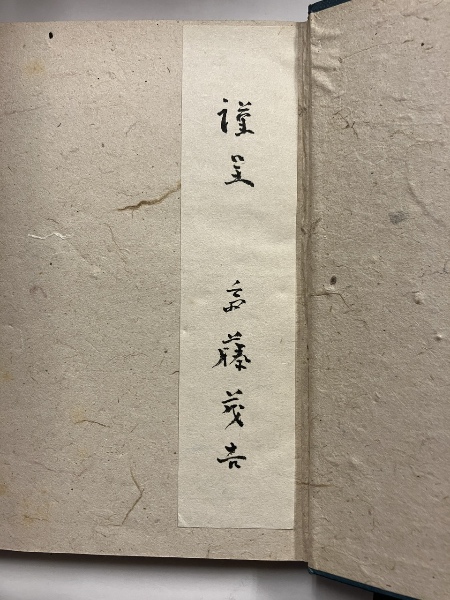 謹呈 斎藤茂吉